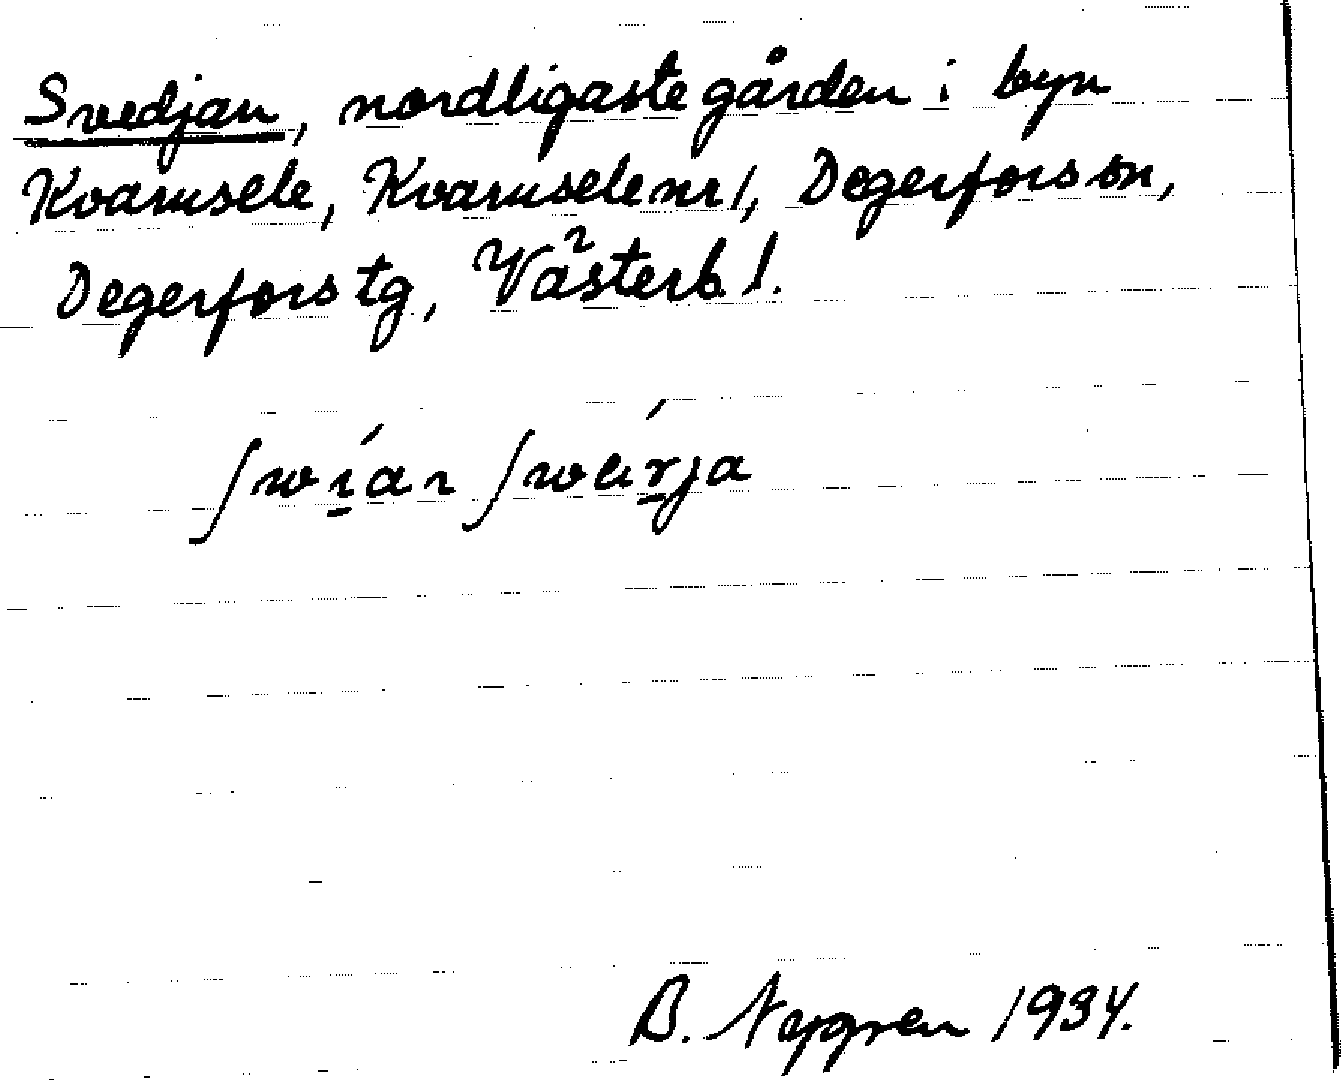 Svedjan, nordligaste gården i byn
Kvarnsele, Kvarnsele nr 1, Degerfors sn,
Degerfors tg, Västerb. l.
B. Nygren 1934.